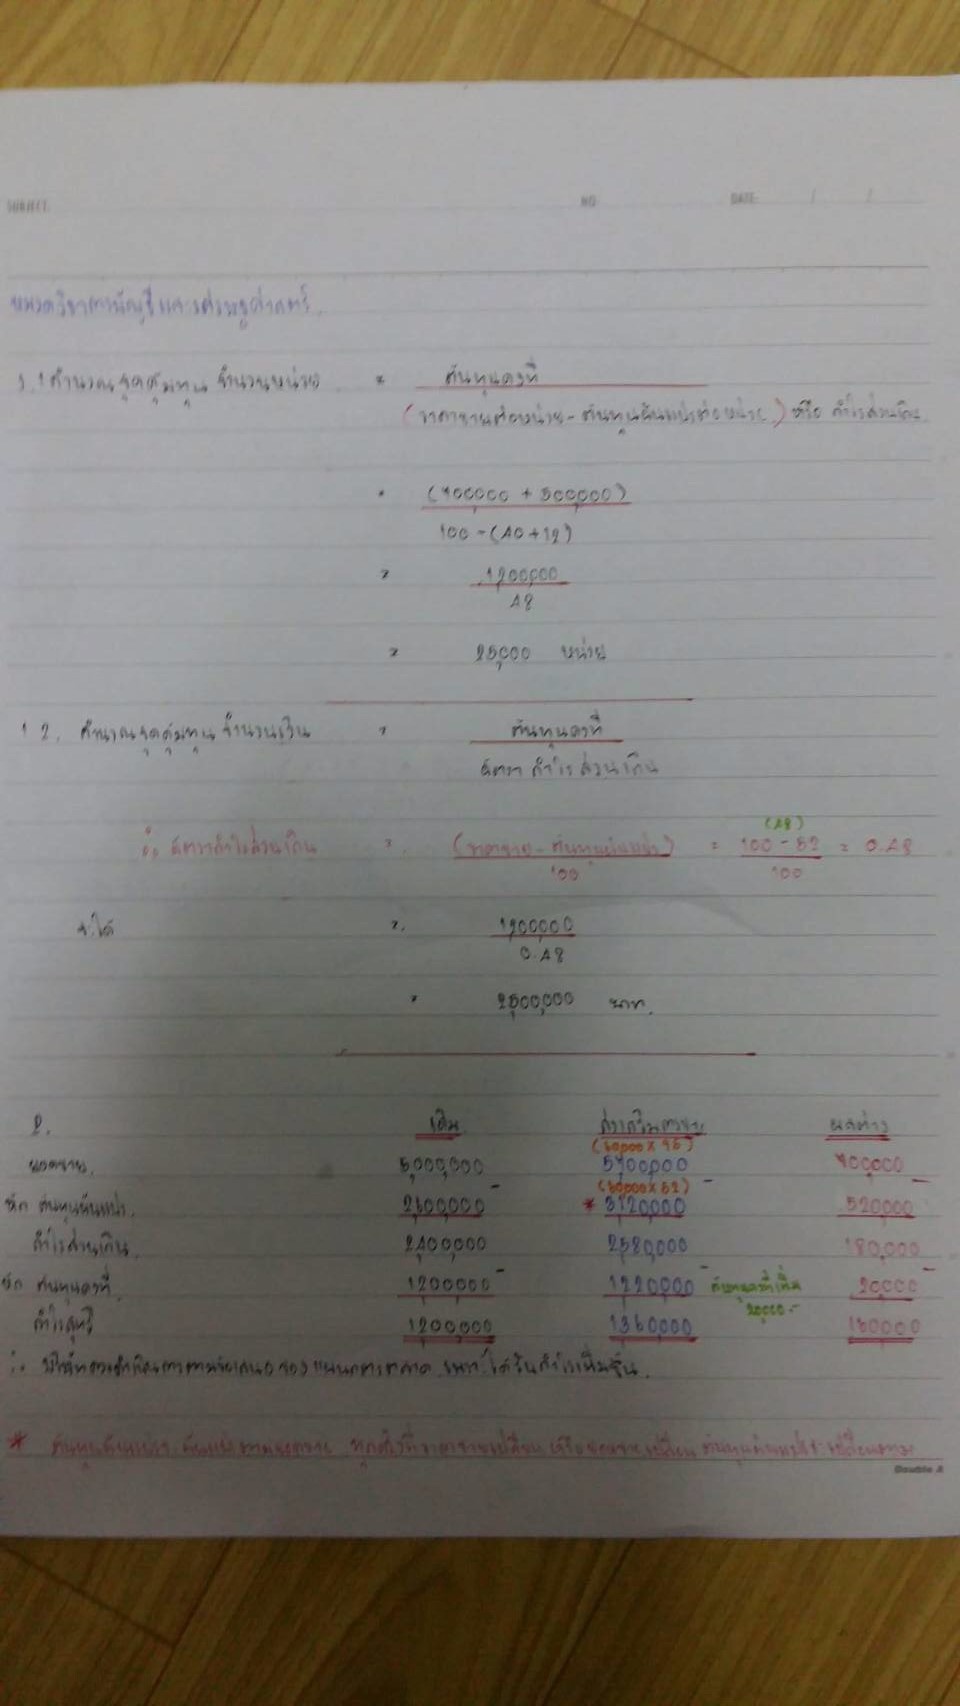 SUBJECT NO. DATE / /
หมวดวิชาการบัญชีและเศรษฐศาสตร์
1.1 คำนวณจุดคุ้มทุน จำนวนหน่วย = ต้นทุนคงที่
(ราคาขายต่อหน่วย - ต้นทุนผันแปรต่อหน่วย) หรือ กำไรส่วนเกิน
= (700,000 + 500,000)
100 - (40+12)
= 1,200,000
48
= 25,000 หน่วย
1.2. คำนวณจุดคุ้มทุน จำนวนเงิน = ต้นทุนคงที่
อัตรากำไรส่วนเกิน
∴ อัตรากำไรส่วนเกิน = (ราคาขาย - ต้นทุนผันแปร) = 100 - 52 = 0.48
(48)
100 100
จะได้ = 1,200,000
0.48
= 2,500,000 บาท.
2. เดิม ส่งเสริมการขาย ผลต่าง
(60,000 x 95)
ยอดขาย. 5,000,000 5,700,000 700,000
(60,000 x 52)
หัก ต้นทุนผันแปร. 2,600,000 * 3,120,000 520,000
กำไรส่วนเกิน. 2,400,000 2,580,000 180,000
หัก ต้นทุนคงที่. 1,200,000 1,220,000 ต้นทุนคงที่เพิ่ม 20,000
20,000.-
กำไรสุทธิ 1,200,000 1,360,000 160,000
∴ บริษัทควรดำเนินการตามข้อเสนอของแผนกการตลาด เพราะได้รับกำไรเพิ่มขึ้น.
* ต้นทุนผันแปร ผันแปรตามยอดขาย ราคาขายเปลี่ยน หรือยอดขายเปลี่ยน ต้นทุนผันแปรจะเปลี่ยนตาม
Double A